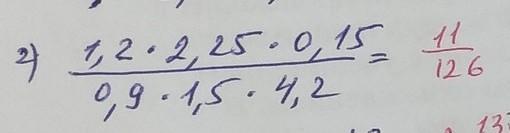 2) 1,2 · 2,25 · 0,15 = 11
0,9 · 1,5 · 4,2 126
13